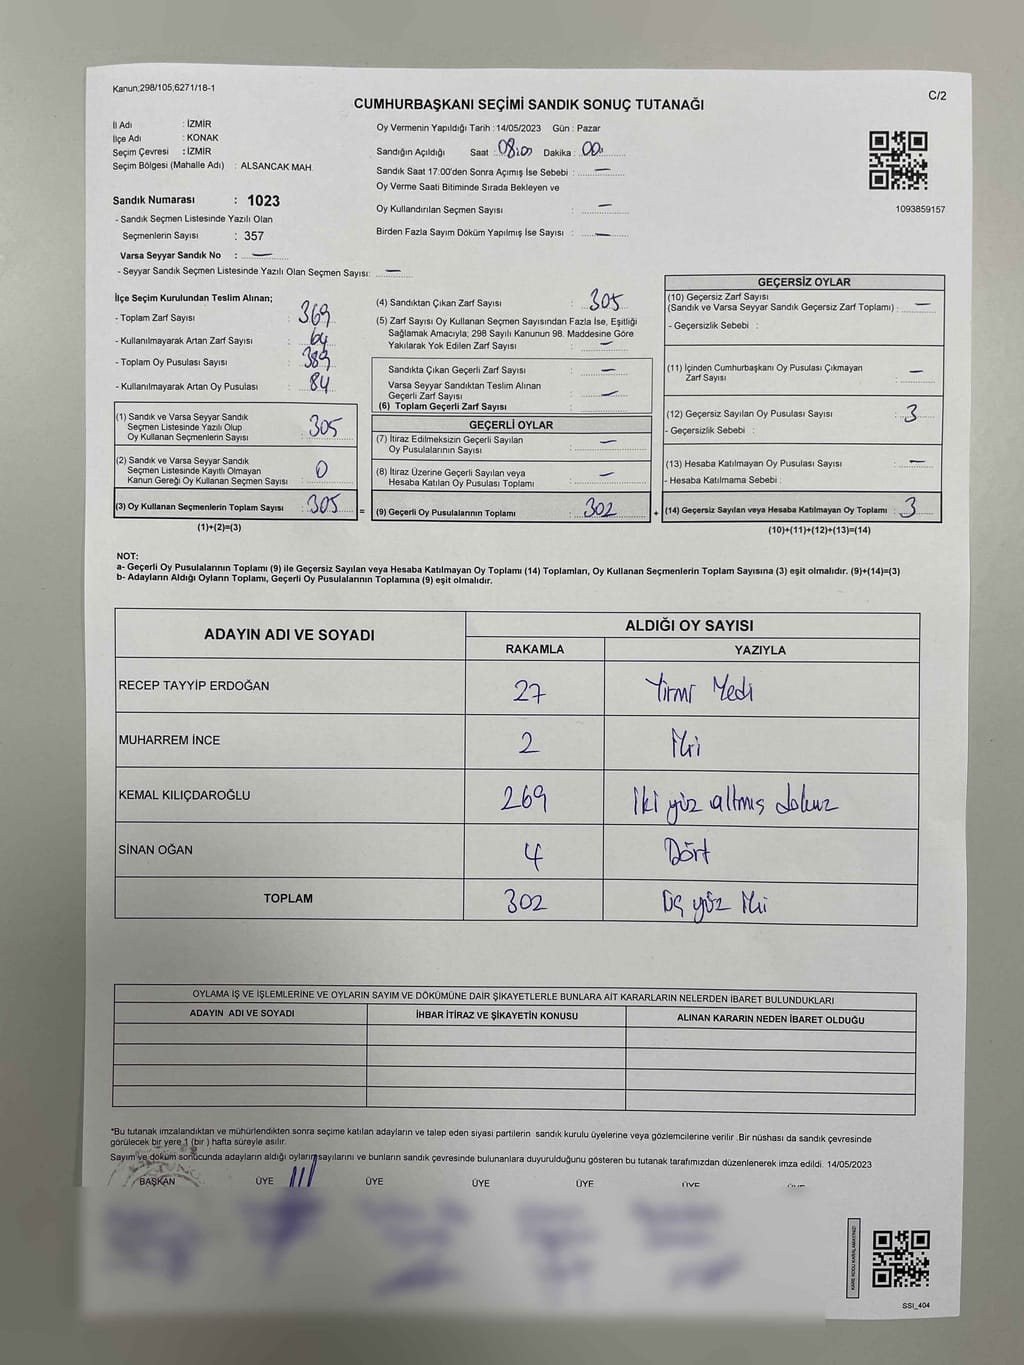 Kanun;298/105,6271/18-1
C/2
CUMHURBAŞKANI SEÇİMİ SANDIK SONUÇ TUTANAĞI
İl Adı : İZMİR
İlçe Adı : KONAK
Seçim Çevresi : İZMİR
Seçim Bölgesi (Mahalle Adı) : ALSANCAK MAH.
Oy Vermenin Yapıldığı Tarih : 14/05/2023 Gün : Pazar
Sandığın Açıldığı Saat : 08:00 Dakika : 00
Sandık Saat 17:00'den Sonra Açımış İse Sebebi : —
Oy Verme Saati Bitiminde Sırada Bekleyen ve
Oy Kullandırılan Seçmen Sayısı : —
Birden Fazla Sayım Döküm Yapılmış İse Sayısı : —
1093859157
Sandık Numarası : 1023
- Sandık Seçmen Listesinde Yazılı Olan
Seçmenlerin Sayısı : 357
Varsa Seyyar Sandık No : —
- Seyyar Sandık Seçmen Listesinde Yazılı Olan Seçmen Sayısı: —
İlçe Seçim Kurulundan Teslim Alınan;
- Toplam Zarf Sayısı : 369
- Kullanılmayarak Artan Zarf Sayısı : 64
- Toplam Oy Pusulası Sayısı : 389
- Kullanılmayarak Artan Oy Pusulası : 84
(1) Sandık ve Varsa Seyyar Sandık
Seçmen Listesinde Yazılı Olup
Oy Kullanan Seçmenlerin Sayısı : 305
(2) Sandık ve Varsa Seyyar Sandık
Seçmen Listesinde Kayıtlı Olmayan
Kanun Gereği Oy Kullanan Seçmen Sayısı : 0
(3) Oy Kullanan Seçmenlerin Toplam Sayısı : 305 =
(1)+(2)=(3)
(4) Sandıktan Çıkan Zarf Sayısı : 305
(5) Zarf Sayısı Oy Kullanan Seçmen Sayısından Fazla İse, Eşitliği
Sağlamak Amacıyla; 298 Sayılı Kanunun 98. Maddesine Göre
Yakılarak Yok Edilen Zarf Sayısı : —
Sandıkta Çıkan Geçerli Zarf Sayısı : —
Varsa Seyyar Sandıktan Teslim Alınan
Geçerli Zarf Sayısı : —
(6) Toplam Geçerli Zarf Sayısı :
GEÇERLİ OYLAR
(7) İtiraz Edilmeksizin Geçerli Sayılan
Oy Pusulalarının Sayısı : —
(8) İtiraz Üzerine Geçerli Sayılan veya
Hesaba Katılan Oy Pusulası Toplamı : —
(9) Geçerli Oy Pusulalarının Toplamı : 302 +
GEÇERSİZ OYLAR
(10) Geçersiz Zarf Sayısı
(Sandık ve Varsa Seyyar Sandık Geçersiz Zarf Toplamı) : —
- Geçersizlik Sebebi :
(11) İçinden Cumhurbaşkanı Oy Pusulası Çıkmayan
Zarf Sayısı : —
(12) Geçersiz Sayılan Oy Pusulası Sayısı : 3
- Geçersizlik Sebebi :
(13) Hesaba Katılmayan Oy Pusulası Sayısı : —
- Hesaba Katılmama Sebebi :
(14) Geçersiz Sayılan veya Hesaba Katılmayan Oy Toplamı : 3
(10)+(11)+(12)+(13)=(14)
NOT:
a- Geçerli Oy Pusulalarının Toplamı (9) ile Geçersiz Sayılan veya Hesaba Katılmayan Oy Toplamı (14) Toplamları, Oy Kullanan Seçmenlerin Toplam Sayısına (3) eşit olmalıdır. (9)+(14)=(3)
b- Adayların Aldığı Oyların Toplamı, Geçerli Oy Pusulalarının Toplamına (9) eşit olmalıdır.
ADAYIN ADI VE SOYADI
ALDIĞI OY SAYISI
RAKAMLA YAZIYLA
RECEP TAYYİP ERDOĞAN 27 Yirmi Yedi
MUHARREM İNCE 2 İki
KEMAL KILIÇDAROĞLU 269 İki yüz altmış dokuz
SİNAN OĞAN 4 Dört
TOPLAM 302 Üç yüz İki
OYLAMA İŞ VE İŞLEMLERİNE VE OYLARIN SAYIM VE DÖKÜMÜNE DAİR ŞİKAYETLERLE BUNLARA AİT KARARLARIN NELERDEN İBARET BULUNDUKLARI
ADAYIN ADI VE SOYADI İHBAR İTİRAZ VE ŞİKAYETİN KONUSU ALINAN KARARIN NEDEN İBARET OLDUĞU
*Bu tutanak imzalandıktan ve mühürlendikten sonra seçime katılan adayların ve talep eden siyasi partilerin sandık kurulu üyelerine veya gözlemcilerine verilir .Bir nüshası da sandık çevresinde
görülecek bir yere 1 (bir ) hafta süreyle asılır.
Sayım ve döküm sonucunda adayların aldığı oyların sayılarını ve bunların sandık çevresinde bulunanlara duyurulduğunu gösteren bu tutanak tarafımızdan düzenlenerek imza edildi. 14/05/2023
BAŞKAN ÜYE ÜYE ÜYE ÜYE ÜYE ÜYE
KARE KODU KARALAMAYINIZ!
SSI_404